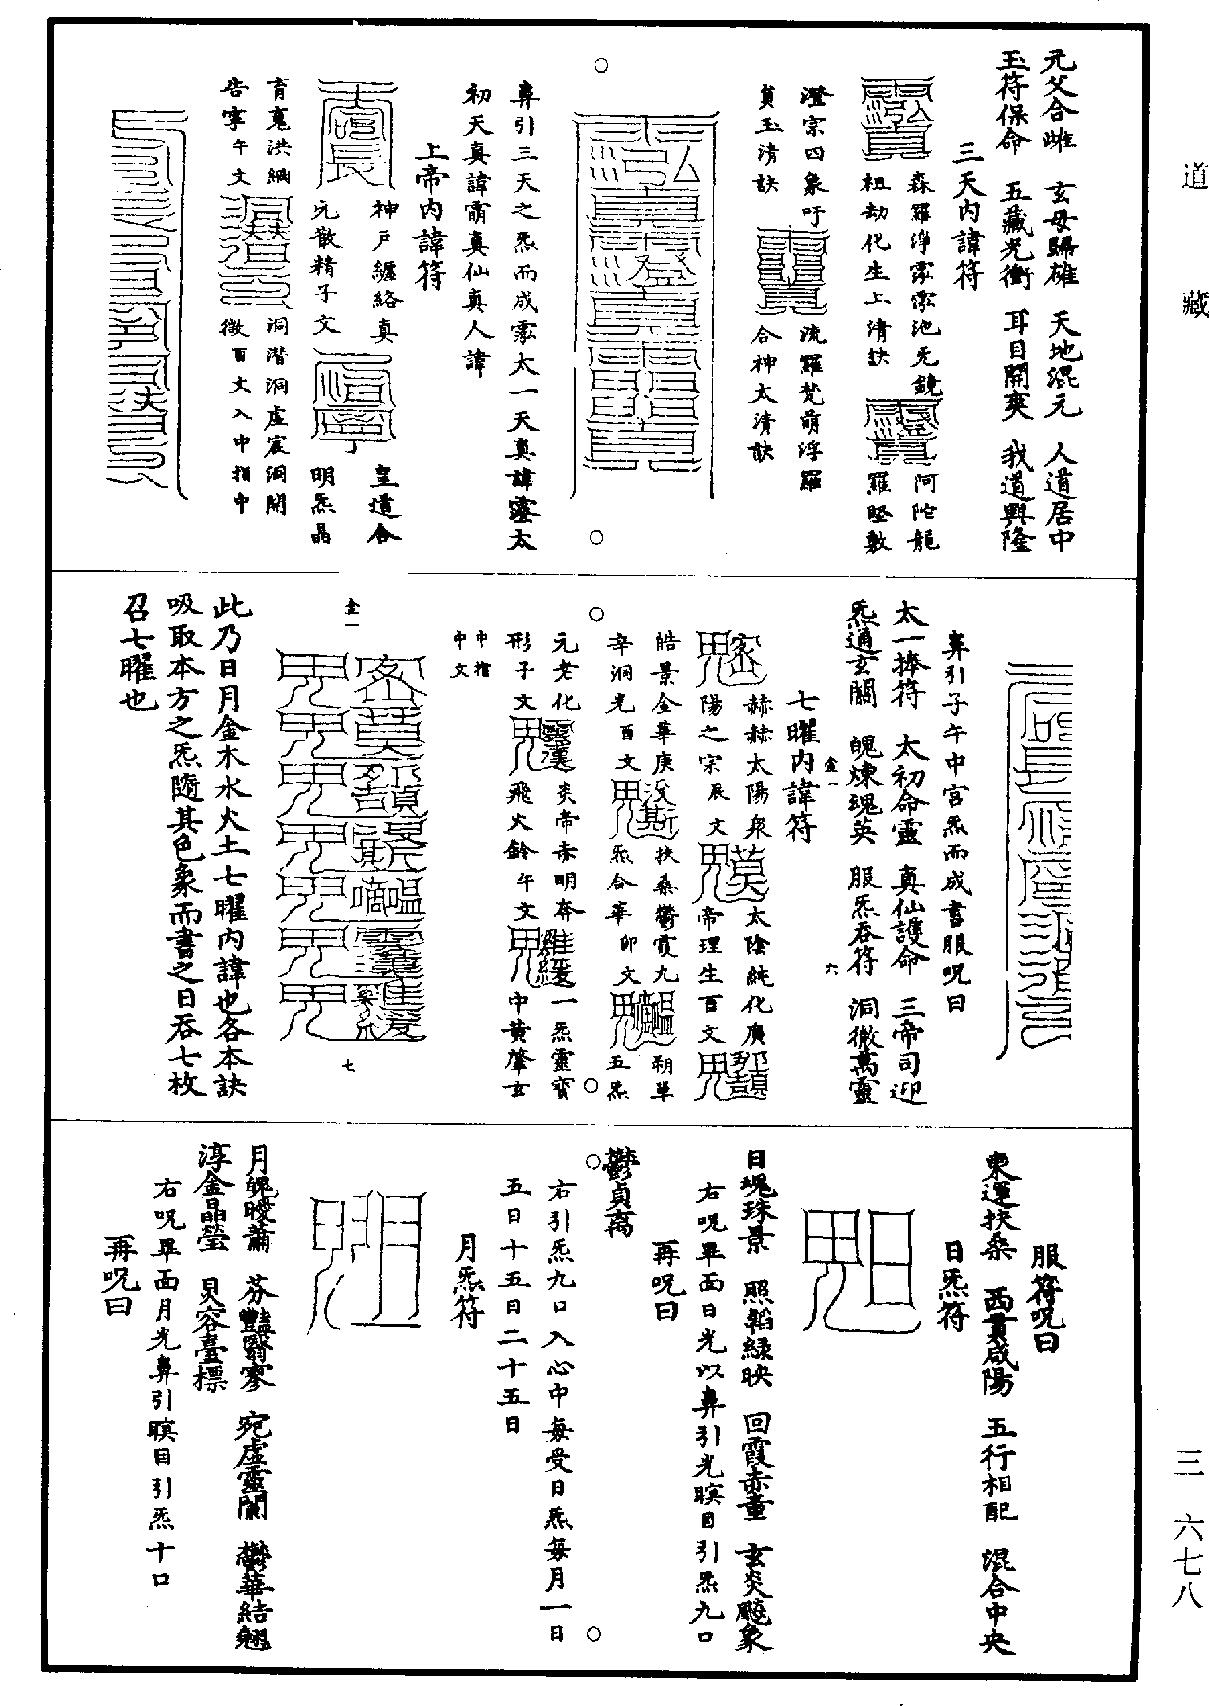 道藏
元父合雌　玄母歸雄　天地混元　人道居中
玉符保命　五藏光衝　耳目開爽　我道興隆
三天內諱符
森羅淨霐霐池无鏡
祖劫化生上清訣
阿陀龍
羅堅敷
澄宗四象吁
貟玉清訣
流羅梵萌浮羅
合神太清訣
鼻引三天之炁而成霐太一天真諱霐太
初天真諱霄真仙真人諱
上帝內諱符
神戸纏絡真
元散精子文
皇道合
明炁晶
育嵬洪綱
告寧午文
洞潛洞虛宸洞開
徹百文入中指中
鼻引子午中宮炁而成書服呪曰
太一捧符　太初命靈　真仙護命　三帝司迎
炁通玄關　魄煉瑰英　服炁吞符　洞徹萬靈
七曜內諱符
赫赫太陽衆
陽之宗辰文
太陰純化廣
帝理生百文
皓景金華庚
辛洞光酉文
扶桑鬱霞九
炁合華卯文
朔單
五炁
元老化
形子文
炎帝赤明奔
飛火鈴午文
一炁靈寶
中黃肇玄
中指
中文
此乃日月金木水火土七曜內諱也各本訣
吸取本方之炁隨其色象而書之日吞七枚
召七曜也
服符呪曰
東運扶桑　西貫咸陽　五行相配　混合中央
日炁符
日魂珠景　照韜綠映　回霞赤童　玄炎飈象
右呪畢面日光以鼻引光瞑目引炁九口
再呪曰
鬱貞嵩
右引炁九口入心中每受日炁每月一日
五日十五日二十五日
月炁符
月魄曖蕭　芬豔翳寥　宛虛靈闌　鬱華結翹
淳金晶瑩　炅容臺標
右呪畢面月光鼻引瞑目引炁十口
再呪曰
三　六七八